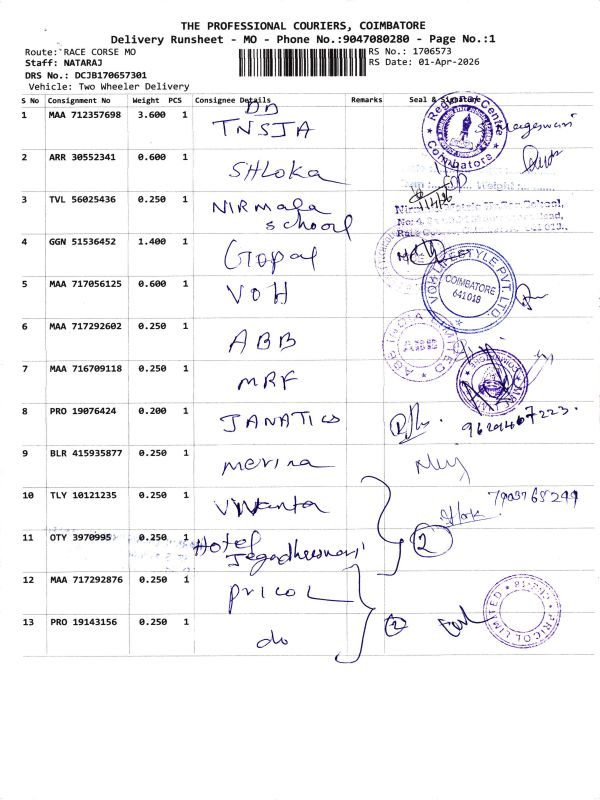 THE PROFESSIONAL COURIERS, COIMBATORE
Delivery Runsheet - MO - Phone No.:9047080280 - Page No.:1
Route: RACE CORSE MO
RS No.: 1706573
Staff: NATARAJ
RS Date: 01-Apr-2026
DRS No.: DCJB170657301
Vehicle: Two Wheeler Delivery
S No Consignment No Weight PCS Consignee Details Remarks Seal & Signature
1 MAA 712357698 3.600 1 TNSJA
Regional Centre Coimbatore
2 ARR 30552341 0.600 1 SHLOKA
3 TVL 56025436 0.250 1 NIRMala school
4 GGN 51536452 1.400 1 Gopal
5 MAA 717056125 0.600 1 VOH
VOH LIFESTYLE PVT. LTD.
COIMBATORE
641018
6 MAA 717292602 0.250 1 ABB
ABB INDIA LIMITED
7 MAA 716709118 0.250 1 MRF
8 PRO 19076424 0.200 1 JANATICS
9 BLR 415935877 0.250 1 merina
10 TLY 10121235 0.250 1 Vivanta
11 OTY 3970995 0.250 1 Hotel Jegadheeswari
2
12 MAA 717292876 0.250 1 PRICOL
PRICOL LIMITED
13 PRO 19143156 0.250 1 do
2